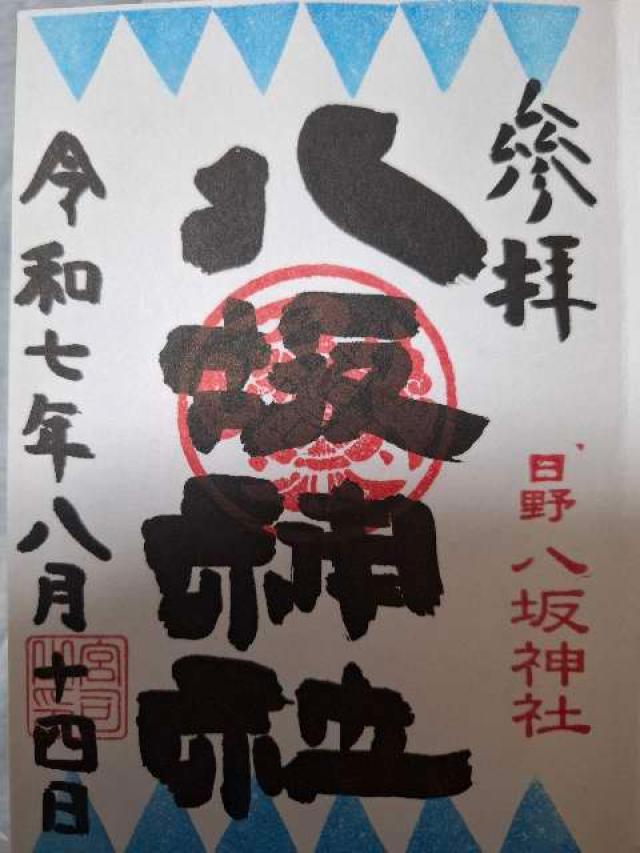 參拝
日野八坂神社
八坂神社
令和七年八月十四日
宮司